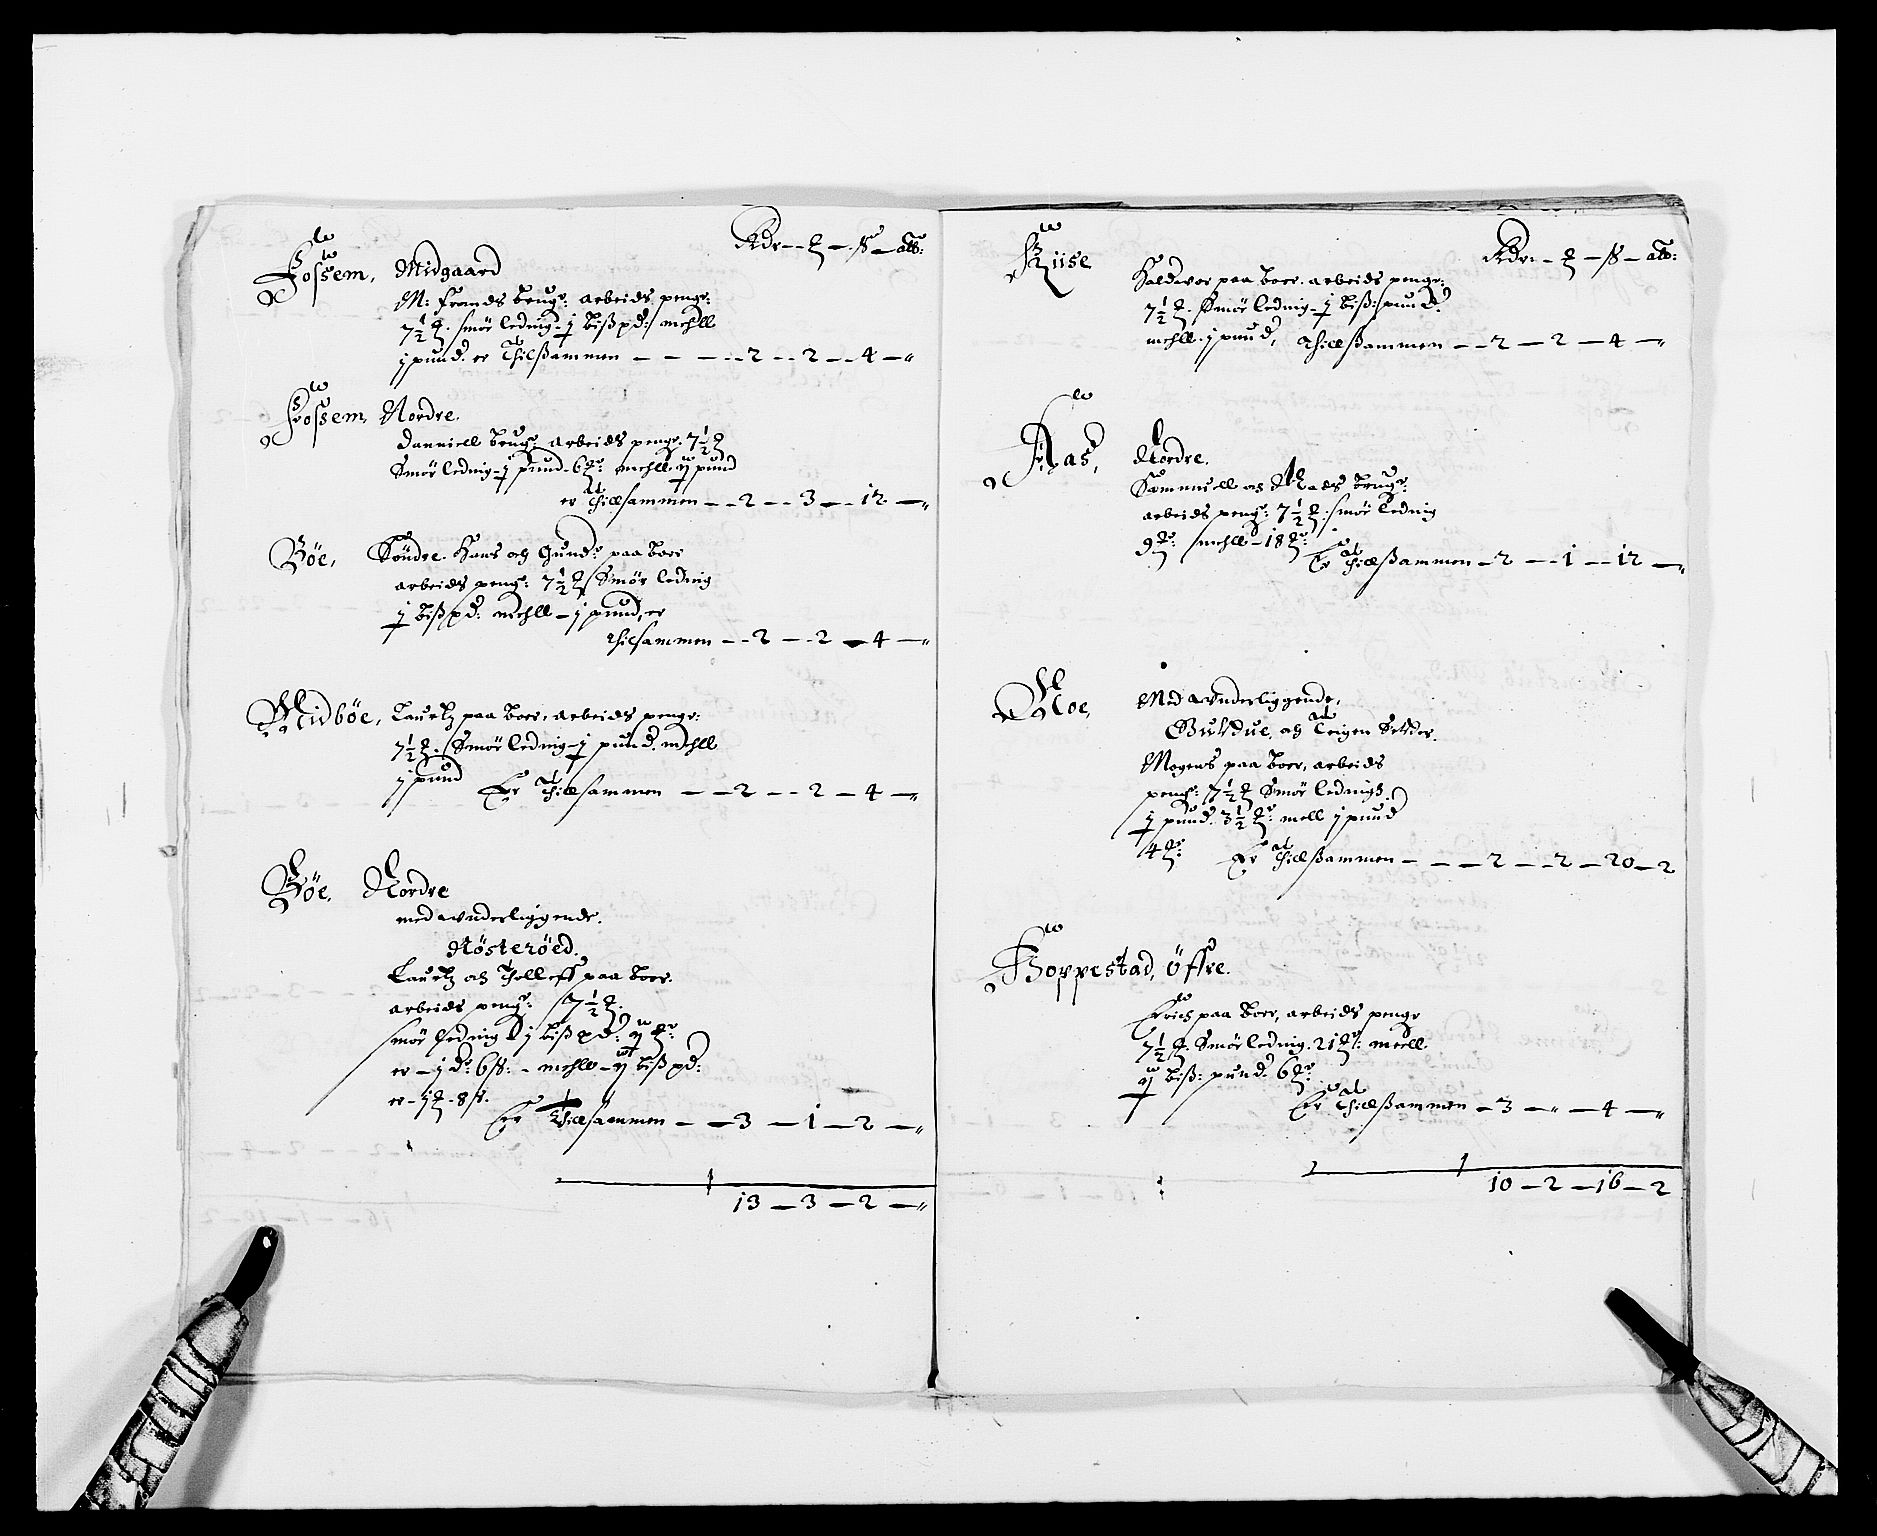 Rdr — ℥ — ß — alb:
Fossem, Midgaard
M: Frands brugr: arbeids pengr:
7½ ℥. smör lednig - j bißpd: mehll
j pund. er Thilßammen — — — 2 — 2 — 4 — „
Fossem Nordre.
Danniell brugr: arbeids pengr. 7½ ℥
Smör lednig - j pund - 6 ℔r: mehll ij pund
er Thillsammen — 2 — 3 — 12 — „
Böe, Söndre. Hans och Gundr paa boer
arbeids pengr: 7½ ℥ Smör lednig
j bißpd: mehll — j pund, er
thilsammen — 2 — 2 — 4 — „
Midböe, Lauritz paa boer, arbeids pengr:
7½ ℥. Smör lednig - j pund. mehll
j pund Er Thillsammen — 2 — 2 — 4 — „
Böe, Nordre
med underliggende.
Nösteröed.
Lauritz och Tolleff paa boer.
arbeids pengr: 7½ ℥.
smör lednig j bißpd: ij ℔r:
er — j dr 6 ß: - mehll — ij bißpd:
er - j ℥ - 8 ß.
Er Thillsammen — 3 — 1 — 2 — „
13 — 3 — 2 — „
Rdr: — ℥ — ß — alb:
Riise
Haldvor paa boer. arbeids pengr:
7½ ℥. Smör lednig - j biß: pund.
mehll. j pund, thillßammen — 2 — 2 — 4 — „
Aas, Nordre.
Sammuell och Mads brugr:
arbeids pengr: 7½ ℥. smör lednig
9 ℔r: mehll - 18 ℔r:
Er Thillßammen — 2 — 1 — 12 — „
Moe, Med underliggende,
och Teigen
Mogens paa boer, arbeids
pengr: 7½ ℥ Smör lednigs.
j pund. 3½ ℔r: mell j pund
4 ℔r: Er Thillßammen — — 2 — 2 — 20 — 2
Hoppestad, öffre.
Erich paa boer, arbeids pengr
7½ ℥. Smör lednig. 21 ℔r: meell
ij biß: pund. 6 ℔r:
Er Thillßammen — 3 — „ — 4 — „
10 — 2 — 16 — 2